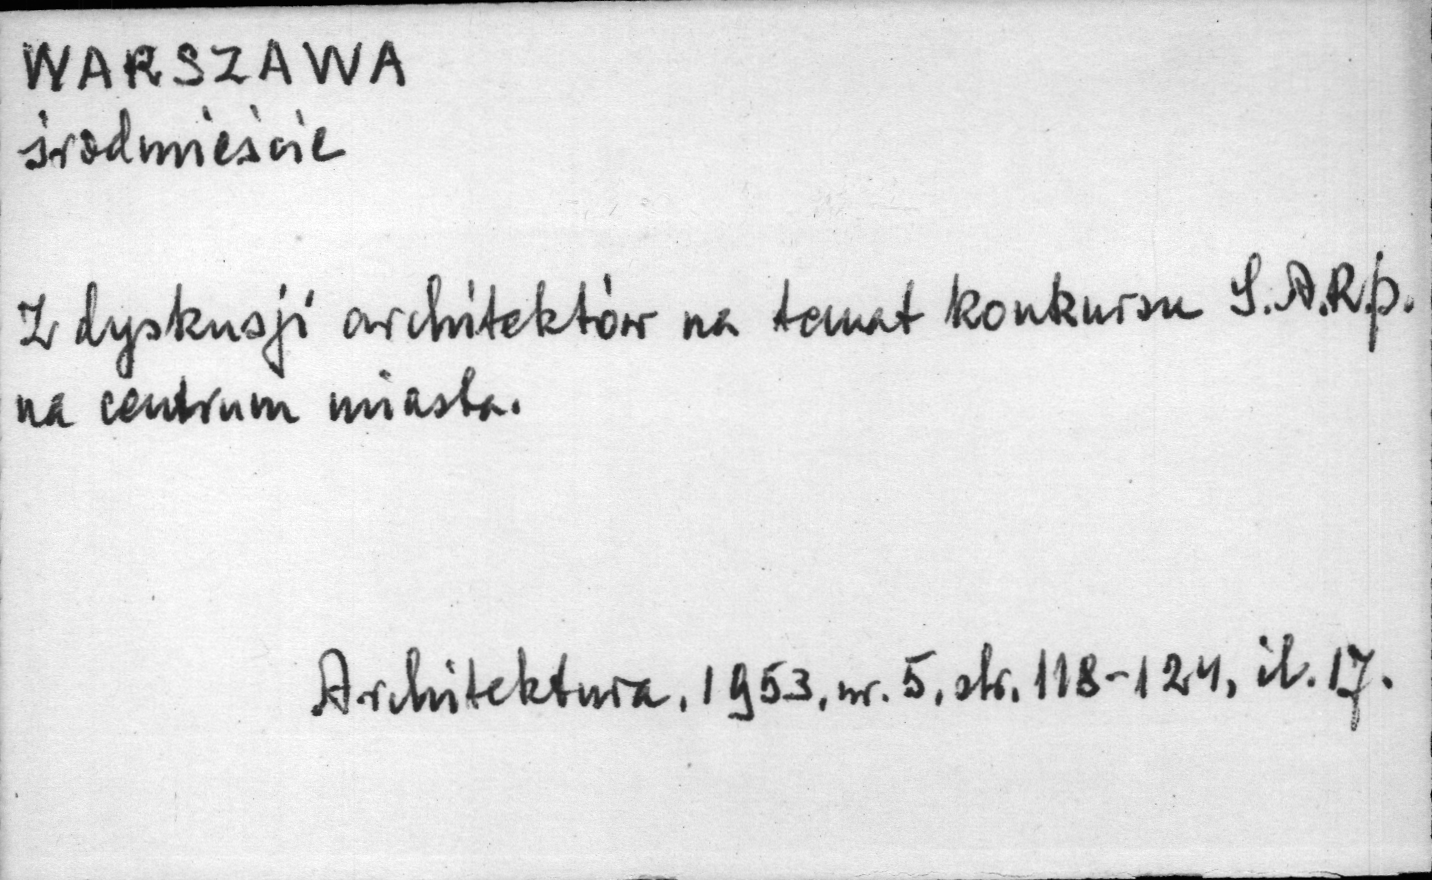 WARSZAWA
śródmieście
Z dyskusji architektów na temat konkursu S.A.R.p.
na centrum miasta.
Architektura, 1953, nr. 5, str. 118-124, il. 17.